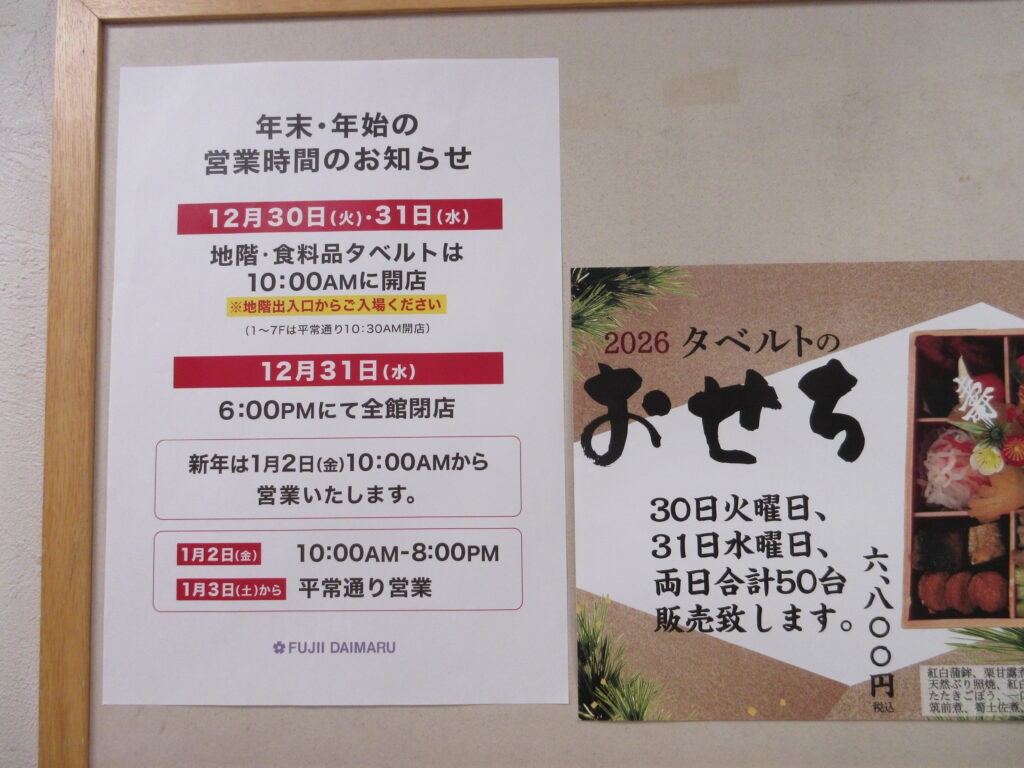 年末・年始の
営業時間のお知らせ
12月30日(火)・31日(水)
地階・食料品タベルトは
10:00AMに開店
※地階出入口からご入場ください
(1〜7Fは平常通り10:30AM開店)
12月31日(水)
6:00PMにて全館閉店
新年は1月2日(金)10:00AMから
営業いたします。
1月2日(金) 10:00AM-8:00PM
1月3日(土)から 平常通り営業
FUJII DAIMARU
2026 タベルトの
おせち
30日火曜日、
31日水曜日、
両日合計50台
販売致します。
六、八〇〇円
税込
紅白蒲鉾、栗甘露煮
天然ぶり照焼、紅白
たたきごぼう、
筑前煮、筍土佐煮、